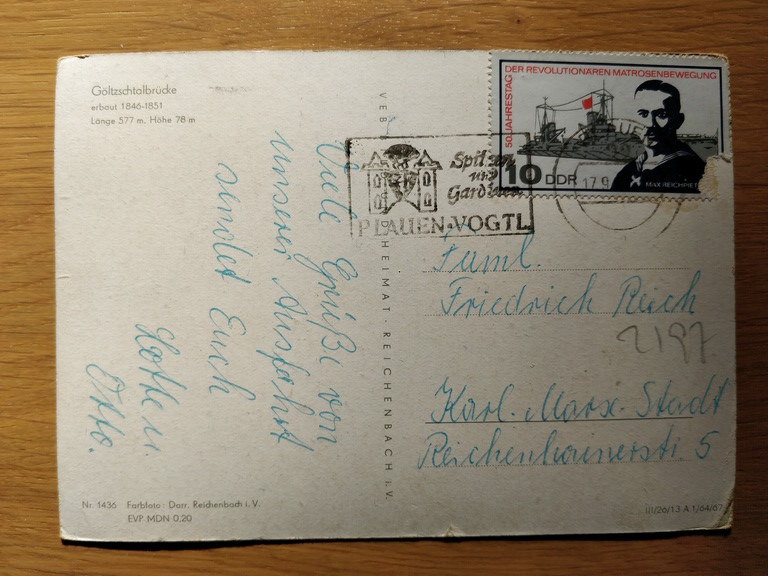 Göltzschtalbrücke
erbaut 1846-1851
Länge 577 m, Höhe 78 m
Viele Grüße von
unserer Ausfahrt
sendet Euch
Otto.
VEB
HEIMAT · REICHENBACH i. V.
50. JAHRESTAG DER REVOLUTIONÄREN MATROSENBEWEGUNG
10 DDR
MAX REICHPIET
17.9
Spitzen
und
Gardinen
PLAUEN · VOGTL.
Faml.
Friedrich Reich
2197
Karl-Marx-Stadt
Reichenhainerstr. 5
Nr. 1436 Farbfoto: Darr, Reichenbach i. V.
EVP MDN 0,20
III/26/13 A 1/64/67